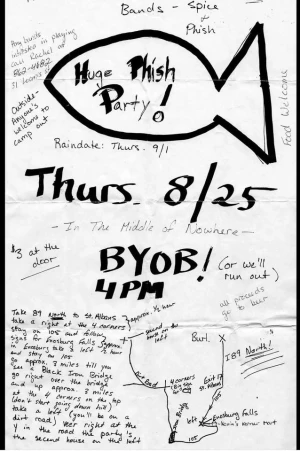 Bands - Spice
+
Phish
Any bands
intrested in playing
call Rachel at
862-
Huge Phish
Party!
Outside-
Anyone's
welcome to
camp out
Food Welcome
Raindate: Thurs. 9/1
Thurs. 8/25
- In The Middle of Nowhere -
$3 at the
door
BYOB! (or we'll
run out)
4PM
all proceeds
go to
Take 89 North to St. Albans
take a right at the 4 corners
stay on 105 and follow
signs for Enosburg Falls
In Enosburg take a left
and stay on 105
Go approx. 7 miles till you
see a Black Iron Bridge
go right over the bridge
and up approx. 2 miles
at the 4 corners on the top
(don't start going down hill)
take a left (you'll be on a
dirt road) Veer right at the
Y in the road the party's
the second house on the left
approx. 1/2 hour
approx. 1/2 hour
second
house on the
left
Burl. X
I89 North!
Dirt Road
4 corners
Big Hill
Exit 19
St. Albans
Iron Bridge
left
105
Enosburg Falls
105